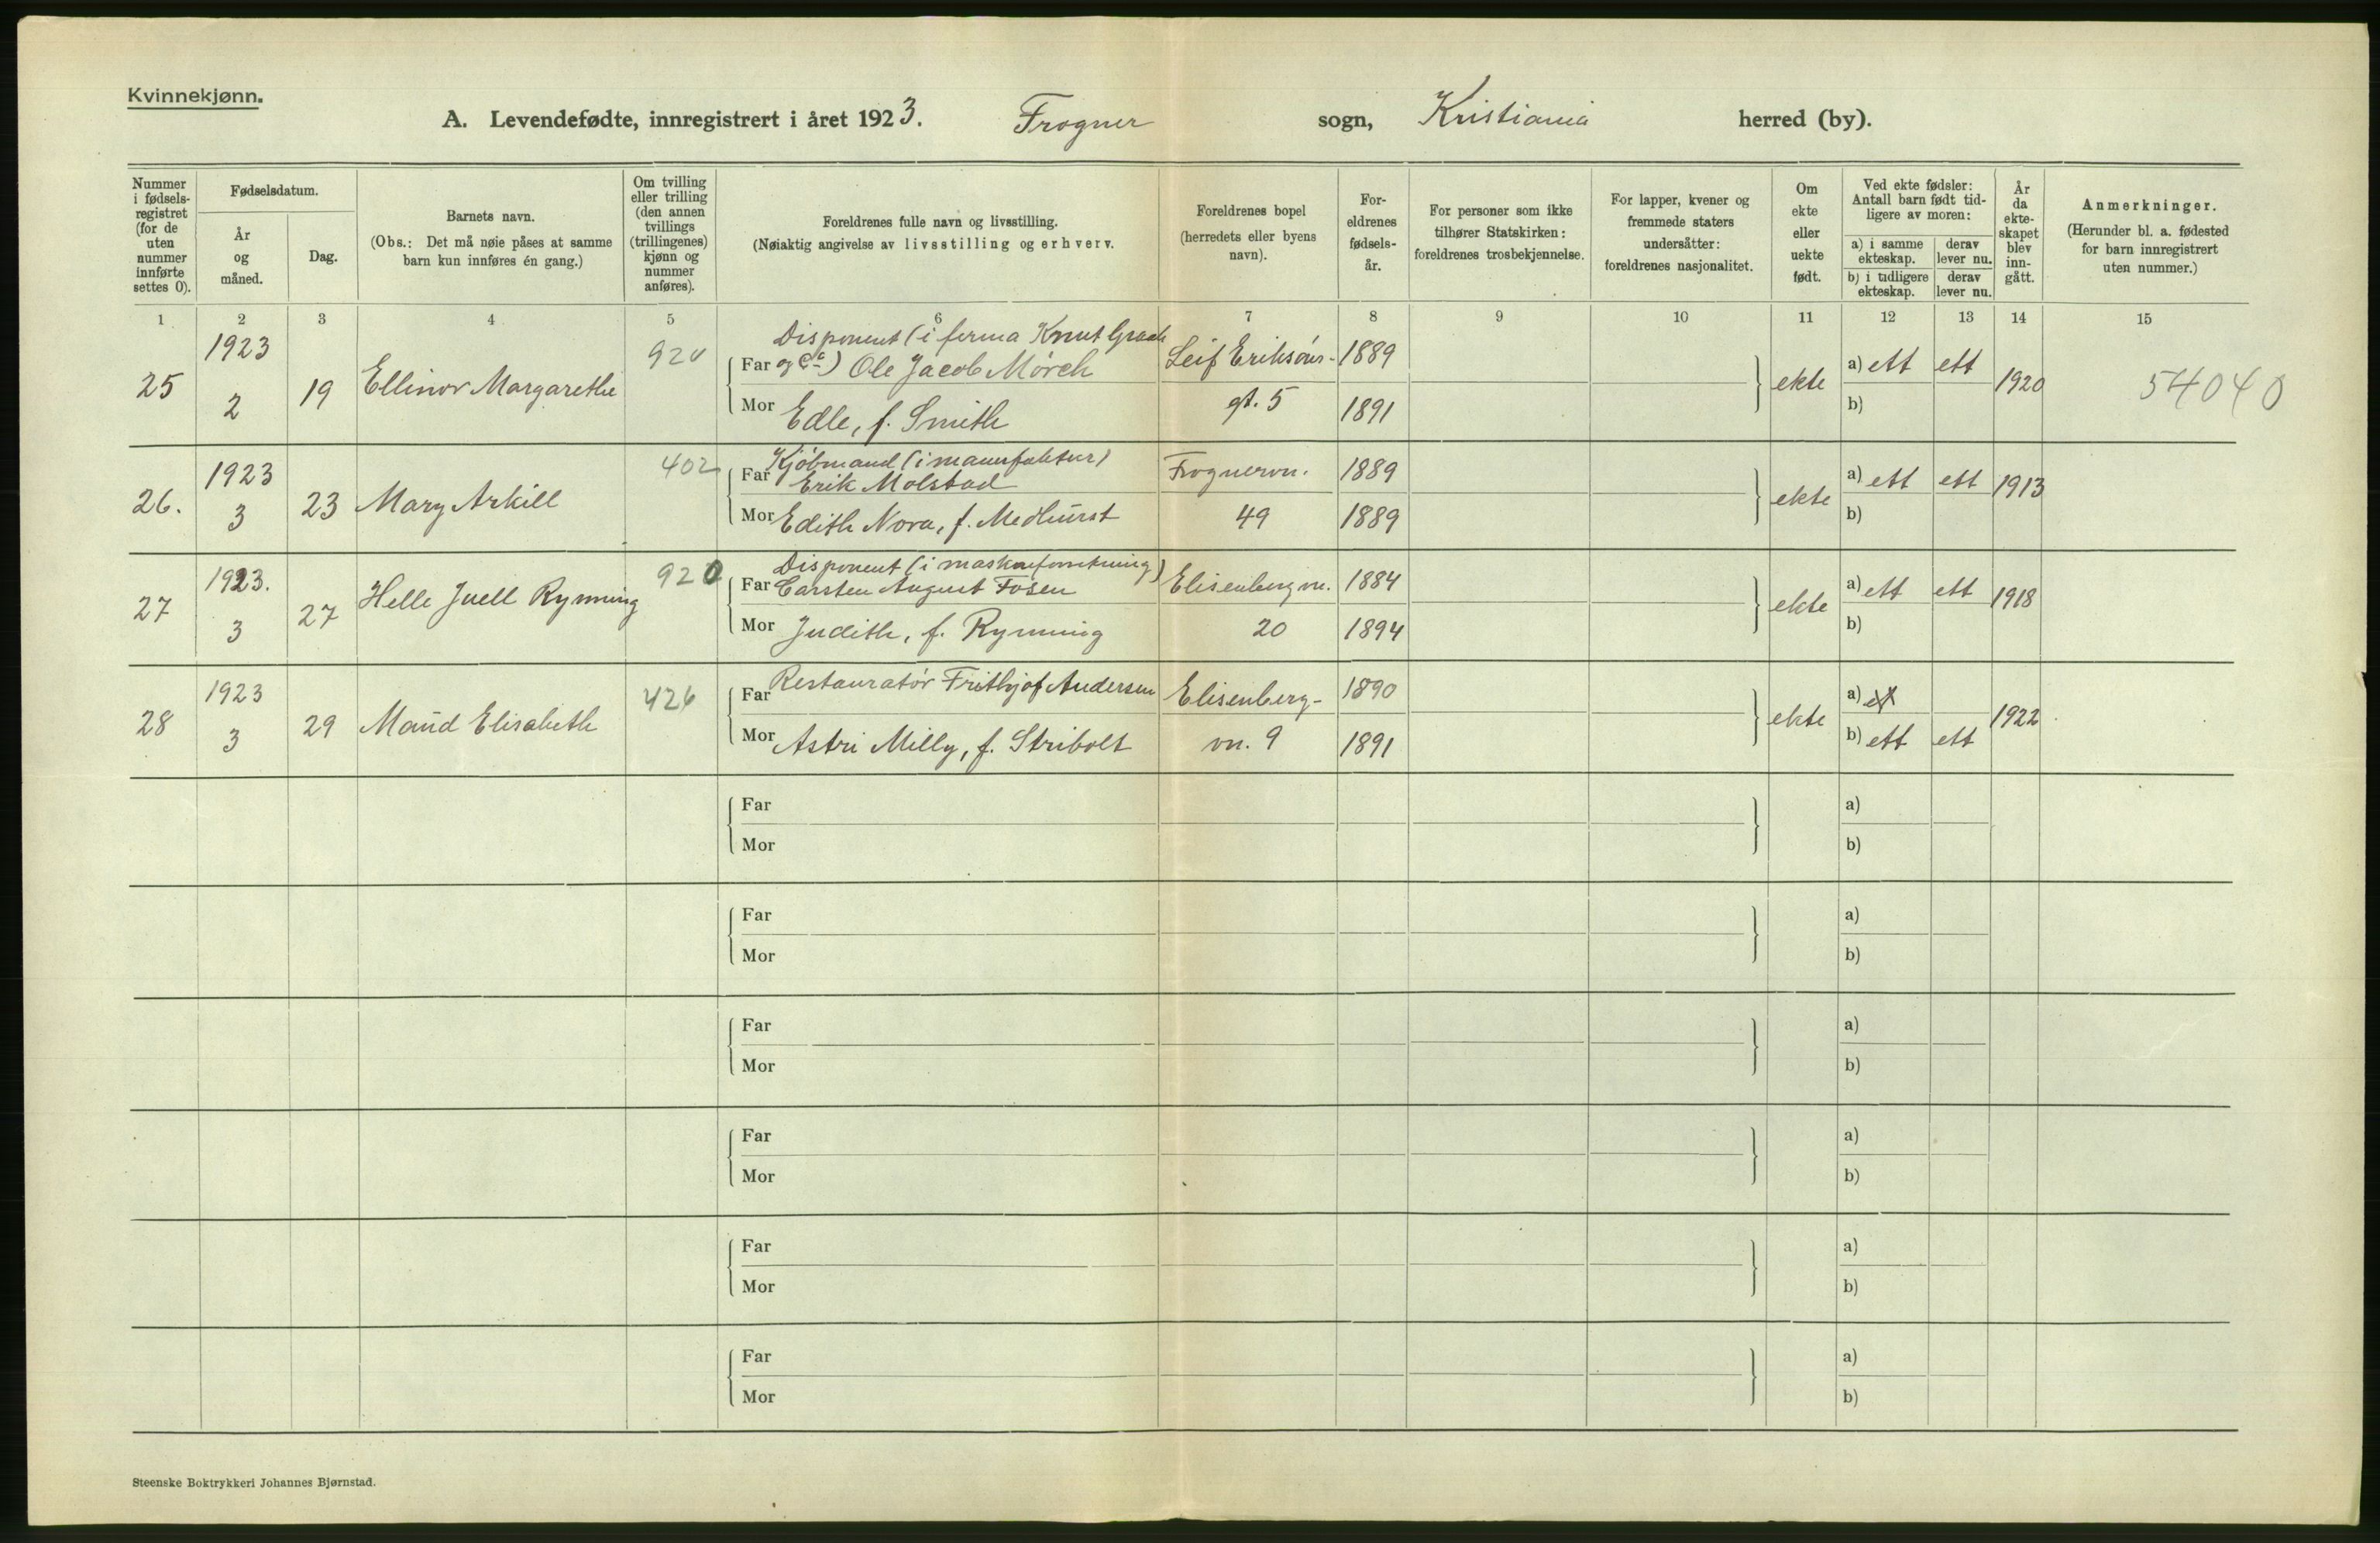 Kvinnekjønn.
A. Levendefødte, innregistrert i året 1923. Frogner sogn, Kristiania herred (by).
Nummer i fødsels-registret (for de uten nummer innførte settes 0).
Fødselsdatum.
År og måned.
Dag.
Barnets navn.
(Obs.: Det må nøie påses at samme barn kun innføres én gang.)
Om tvilling eller trilling (den annen tvillings (trillingenes) kjønn og nummer anføres).
Foreldrenes fulle navn og livsstilling.
(Nøiaktig angivelse av livsstilling og erhverv.
Foreldrenes bopel (herredets eller byens navn).
For-eldrenes fødsels-år.
For personer som ikke tilhører Statskirken: foreldrenes trosbekjennelse.
For lapper, kvener og fremmede staters undersåtter: foreldrenes nasjonalitet.
Om ekte eller uekte født.
Ved ekte fødsler: Antall barn født tid-ligere av moren:
a) i samme ekteskap.
derav lever nu.
b) i tidligere ekteskap.
derav lever nu.
År da ekte-skapet blev inn-gått.
Anmerkninger.
(Herunder bl. a. fødested for barn innregistrert uten nummer.)
1 2 3 4 5 6 7 8 9 10 11 12 13 14 15
25 1923 2 19 Ellinor Margarethe 920
Disponent (i ferma Knut Graah
Far og Co) Ole Jacob Mörch Leif Eriksöns- 1889
Mor Edle, f. Smith gt. 5 1891
ekte a) ett ett b) 1920 54040
26. 1923 3 23 Mary Arkill 402
Kjöbmand (i manufaktur)
Far Erik Molstad Frognervn. 1889
Mor Edith Nora, f. Medhurst 49 1889
ekte a) ett ett b) 1913
27 1923. 3 27 Helle Juell Rynning 920
Disponent (i maskinforretning)
Far Carsten August Fosen Elisenbergvn. 1884
Mor Judith, f. Rynning 20 1894
ekte a) ett ett b) 1918
28 1923 3 29 Maud Elisabeth 426
Far Restauratör Frithjof Andersen Elisenberg- 1890
Mor Astri Milly, f. Stribolt vn. 9 1891
ekte a) b) ett ett 1922
Far a)
Mor b)
Far a)
Mor b)
Far a)
Mor b)
Far a)
Mor b)
Far a)
Mor b)
Far a)
Mor b)
Steenske Boktrykkeri Johannes Bjørnstad.